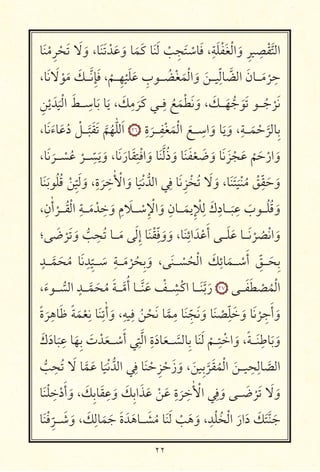 التَّقْصِيرِ وَالْغَفْلَةِ، فَاسْتَجِبْ لَنَا كَمَا وَعَدْتَنَا، وَلَا تَحْرِمْنَا
حِرْمَانَ الضَّالِّينَ وَالْمَغْضُوبِ عَلَيْهِمْ، فَإِنَّكَ مَوْلَانَا،
نَرْجُو وَجْهَكَ، وَنَطْمَعُ فِي كَرَمِكَ، يَا بَاسِطَ الْيَدَيْنِ
بِالرَّحْمَةِ، وَيَا وَاسِعَ الْمَغْفِرَةِ ٢٦ اللَّهُمَّ تَقَبَّلْ دُعَاءَنَا،
وَارْحَمْ عَجْزَنَا وَضَعْفَنَا وَذُلَّنَا وَافْتِقَارَنَا، وَيَسِّرْ عُسْرَنَا،
وَحَقِّقْ مُنْيَتَنَا، وَلَا تُخْزِنَا فِي الدُّنْيَا وَالْآخِرَةِ، وَلَيِّنْ قُلُوبَنَا
وَقُلُوبَ عِبَادِكَ لِلْإِيمَانِ وَالْإِسْلَامِ وَخِدْمَةِ الْقُرْآنِ،
وَانْصُرْنَا عَلَى أَعْدَائِنَا، وَوَفِّقْنَا إِلَى مَا تُحِبُّ وَتَرْضَى؛
بِحَقِّ أَسْمَائِكَ الْحُسْنَى، وَبِحُرْمَةِ سَيِّدِنَا مُحَمَّدٍ
الْمُصْطَفَى ٢٧ رَبَّنَا اكْشِفْ عَنَّا أُمَّةَ مُحَمَّدٍ السُّوءَ،
وَأَجِرْنَا وَخَلِّصْنَا وَنَجِّنَا مِمَّا نَحْنُ فِيهِ، وَأَتِنَا نِعْمَةً ظَاهِرَةً
وَبَاطِنَةً، وَاخْتِمْ لَنَا بِالسَّعَادَةِ الَّتِي أَسْعَدْتَ بِهَا عِبَادَكَ
الصَّالِحِينَ الْمُقَرَّبِينَ، وَزَحْزِحْنَا فِي الدُّنْيَا عَمَّا لَا تُحِبُّ
وَلَا تَرْضَى، وَفِي الْآخِرَةِ عَنْ عَذَابِكَ وَعِقَابِكَ، وَأَدْخِلْنَا
جَنَّتَكَ دَارَ الْخُلْدِ، وَهَبْ لَنَا مُشَاهَدَةَ جَمَالِكَ، وَشَرِّفْنَا
٢٢